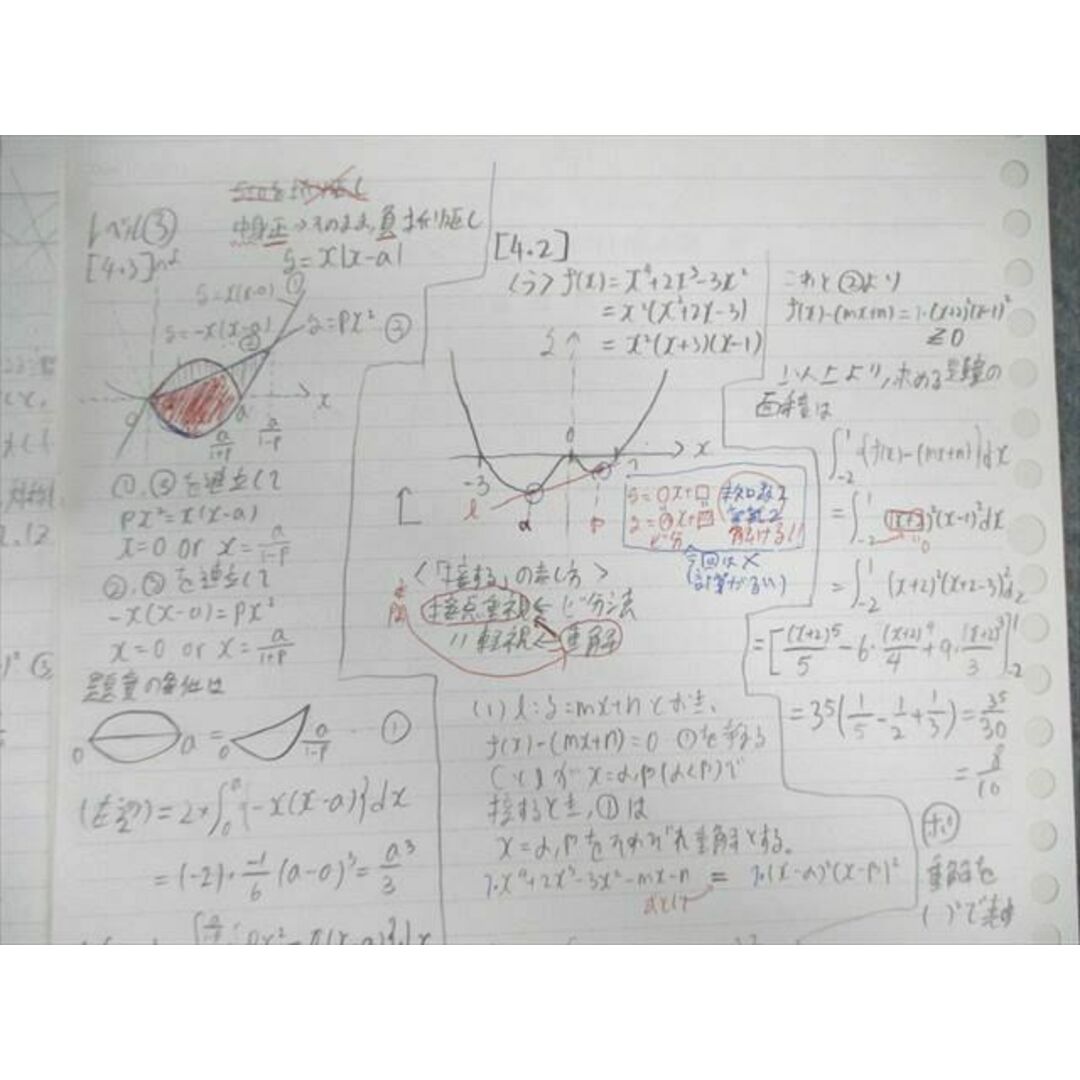 レベル③
中身正→そのまま,負→折り返し
[4.3]
y=x|x-a|
y=x(x-a) ①
y=-x(x-a) ②
y=px² ③
x
0
a
a/(1+p)
a/(1-p)
①,③を連立して
px²=x(x-a)
x=0 or x=a/(1-p)
②,③を連立して
-x(x-a)=px²
x=0 or x=a/(1+p)
題意の条件は
0 a = 0 a/(1-p)
(左辺)=2×∫₀ᵃ{-x(x-a)}dx
=(-2)·(-1/6)(a-0)³=a³/3
[4.2]
f(x)=x⁴+2x³-3x²
=x²(x²+2x-3)
=x²(x+3)(x-1)
y
0
x
-3
1
l
α
β
y=○x+□
y=○x+□
ビ分
未知数
解ける!!
今回は×
(計算がるい)
<「接する」の表し方>
接点重視←ビ分法
〃軽視←重解
(1) l:y=mx+nとおき、
f(x)-(mx+n)=0 ①を考える
Cとlがx=α,β(α<β)で
接するとき,①は
x=α,βをそれぞれ重解とする。
1·x⁴+2x³-3x²-mx-n = 1·(x-α)²(x-β)²
これと②より
f(x)-(mx+n)=1·(x+2)²(x-1)²
≧0
以上より,求める題意の
面積は
∫₋₂¹{f(x)-(mx+n)}dx
=∫₋₂¹(x+2)²(x-1)²dx
=∫₋₂¹(x+2)²(x+2-3)²dx
=[(x+2)⁵/5-6·(x+2)⁴/4+9·(x+2)³/3]₋₂¹
=3⁵(1/5-1/2+1/3)=3⁵/30
=8/10
ホ。
重解を
( )²で表す